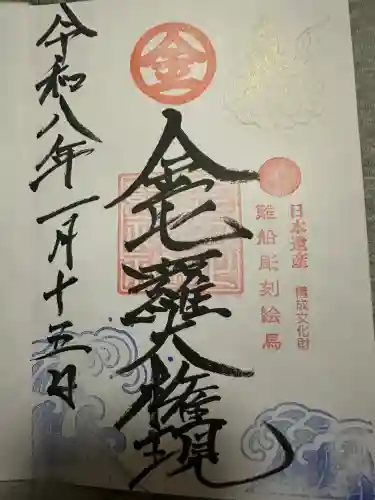 金
日本遺産 構成文化財
難船彫刻絵馬
金毘羅大権現
令和八年一月十五日